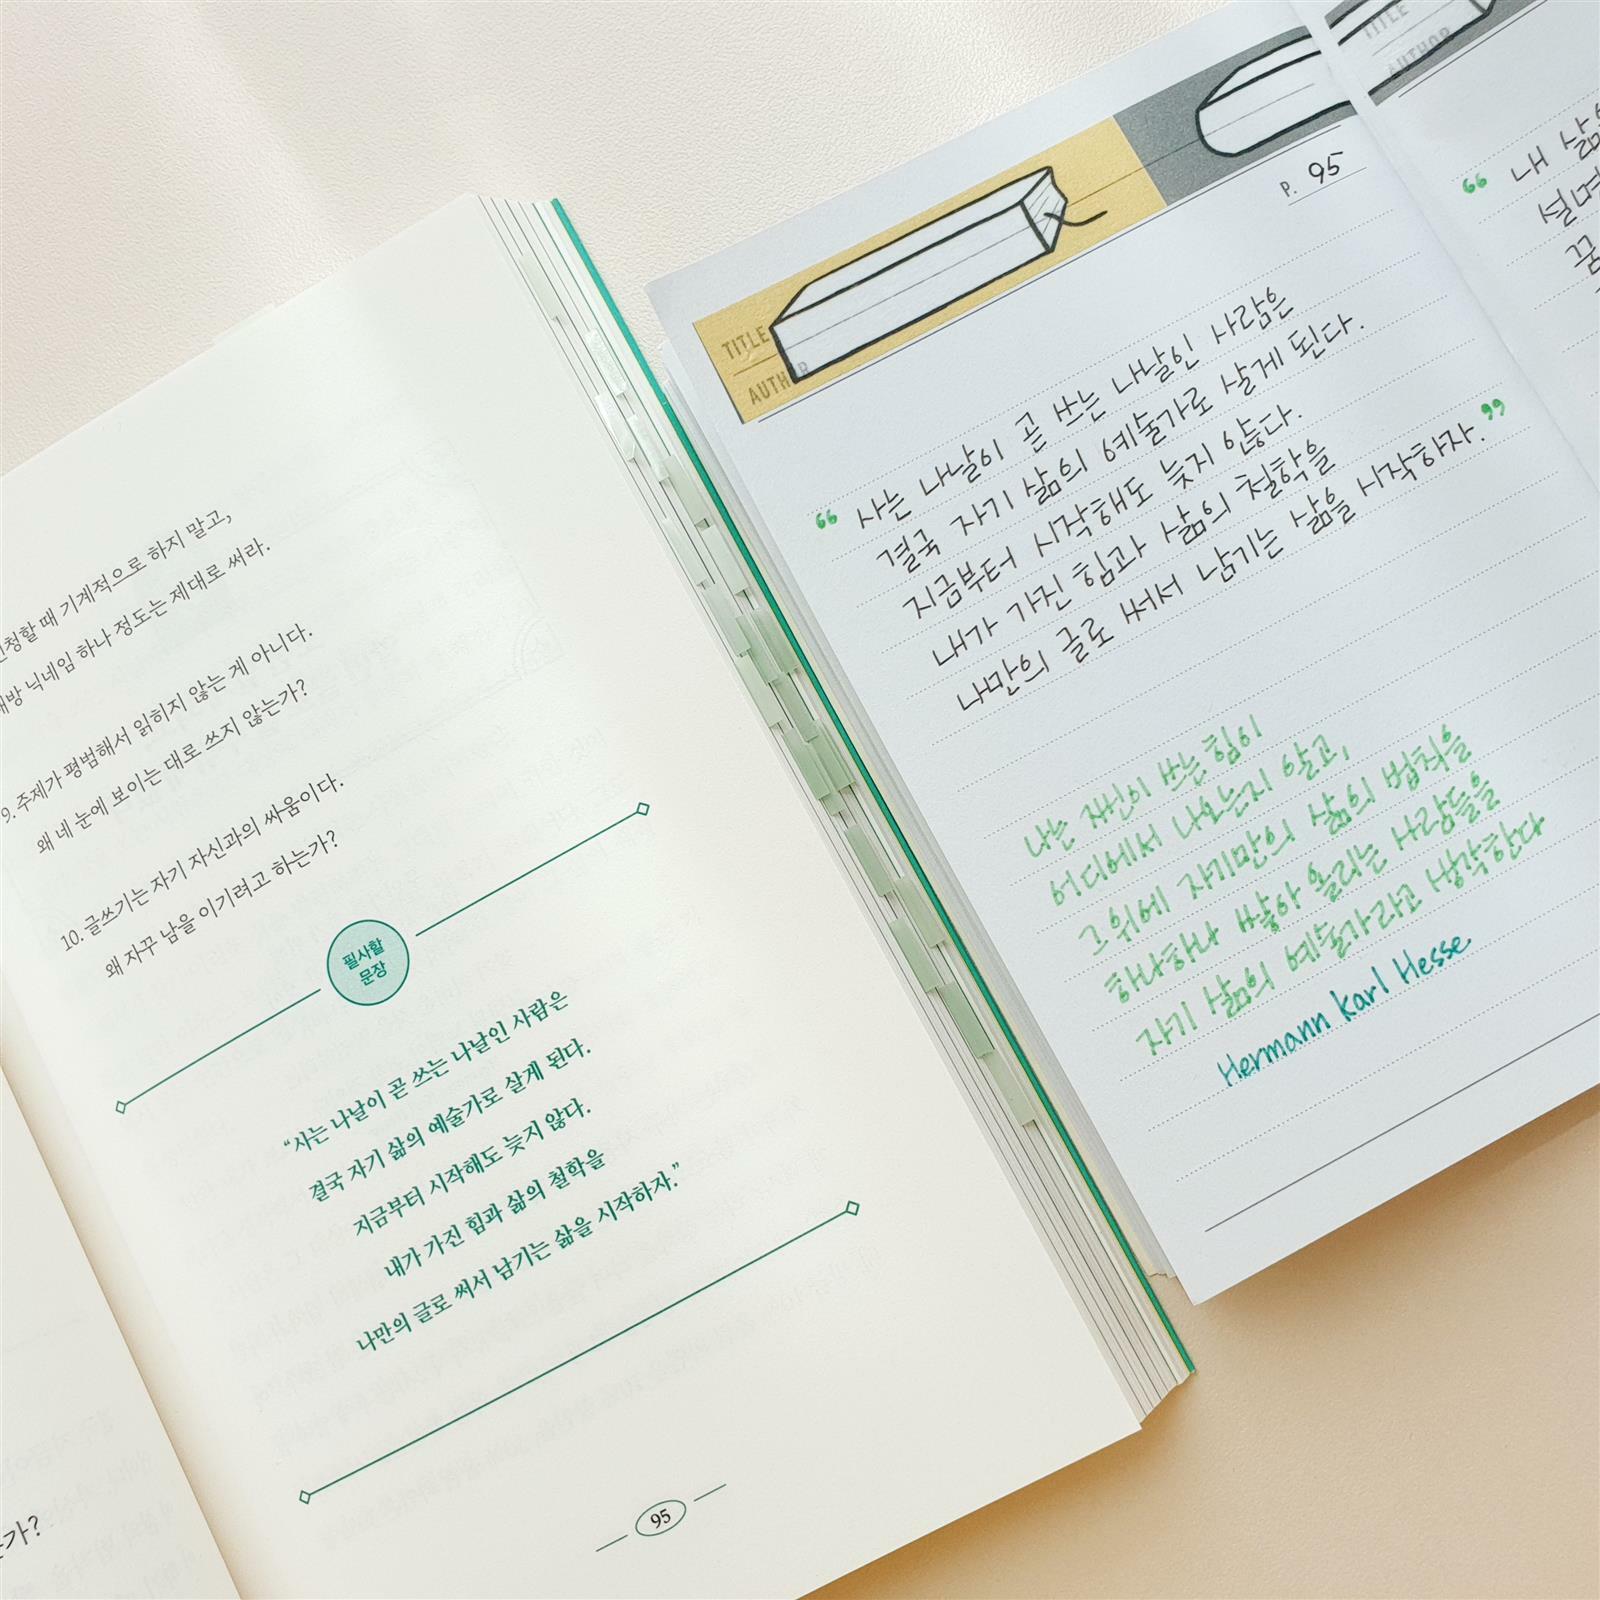 때 기계적으로 하지 말고,
닉네임 하나 정도는 제대로 써라.
9. 주제가 평범해서 읽히지 않는 게 아니다.
왜 네 눈에 보이는 대로 쓰지 않는가?
10. 글쓰기는 자기 자신과의 싸움이다.
왜 자꾸 남을 이기려고 하는가?
필사할
문장
“사는 나날이 곧 쓰는 나날인 사람은
결국 자기 삶의 예술가로 살게 된다.
지금부터 시작해도 늦지 않다.
내가 가진 힘과 삶의 철학을
나만의 글로 써서 남기는 삶을 시작하자.”
95
TITLE
AUTHOR
P. 95
“ 사는 나날이 곧 쓰는 나날인 사람은
결국 자기 삶의 예술가로 살게 된다.
지금부터 시작해도 늦지 않다.
내가 가진 힘과 삶의 철학을
나만의 글로 써서 남기는 삶을 시작하자. ”
나는 재인이 쓰는 힘이
어디에서 나오는지 알고,
그 위에 자기만의 삶의 법칙을
하나하나 쌓아 올리는 사람들을
자기 삶의 예술가라고 생각한다
Hermann Karl Hesse
TITLE
AUTHOR
“ 내